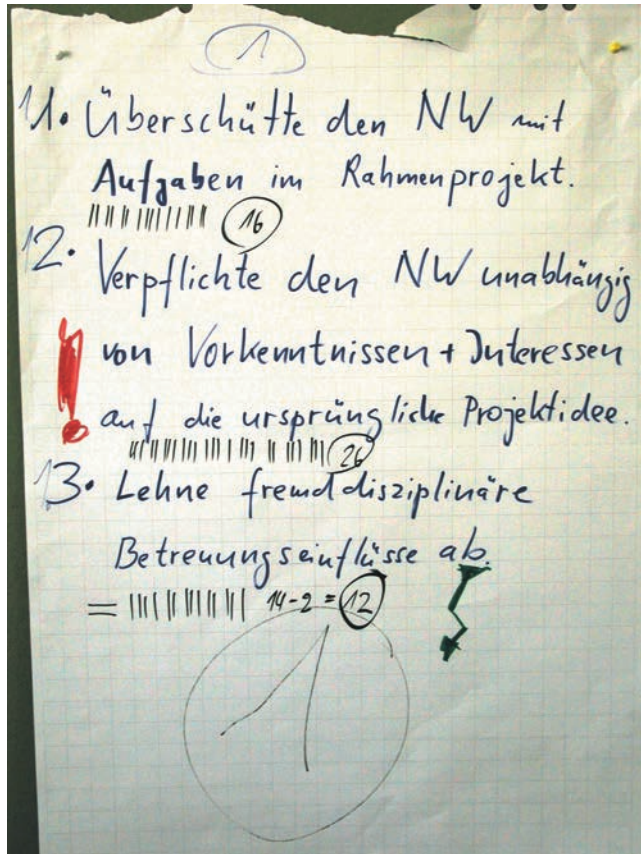 1
11. Überschütte den NW mit
Aufgaben im Rahmenprojekt.
16
12. Verpflichte den NW unabhängig
von Vorkenntnissen + Interessen
! auf die ursprüngliche Projektidee.
26
13. Lehne fremddisziplinäre
Betreuungseinflüsse ab.
= 14-2 = 12
1